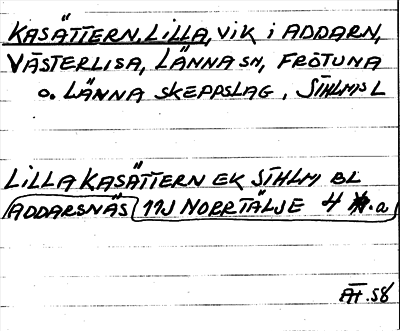 KASÄTTERN, LILLA, VIK I ADDARN,
VÄSTERLISA, LÄNNA SN, FRÖTUNA
O. LÄNNA SKEPPSLAG, STHLMS L
LILLA KASÄTTERN EK STHLM BL
ADDARSNÄS 11J NORRTÄLJE 4 .a
ÄT.58